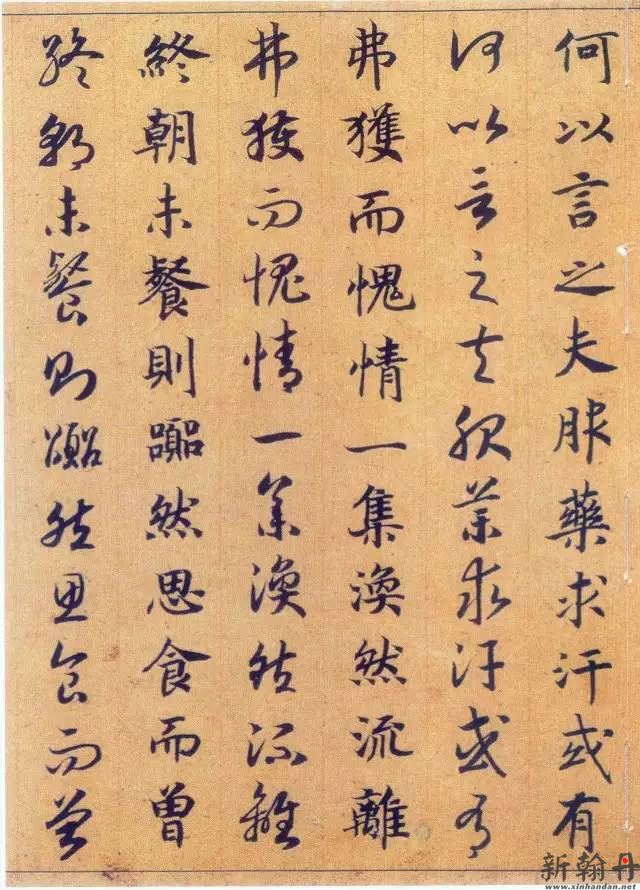 何以言之夫服藥求汗或有
何以言之夫服藥求汗或有
弗獲而愧情一集渙然流離
弗獲而愧情一集渙然流離
終朝未餐則囂然思食而曾
終朝未餐則囂然思食而曾
新翰丹
www.xinhandan.net